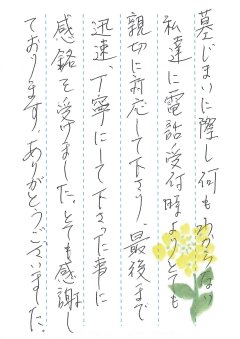 墓じまいに際し何もわからない
私達に電話受付時よりとても
親切に対応して下さり、最後まで
迅速、丁寧にして下さった事に
感銘を受けました。とても感謝し
ております。ありがとうございました。